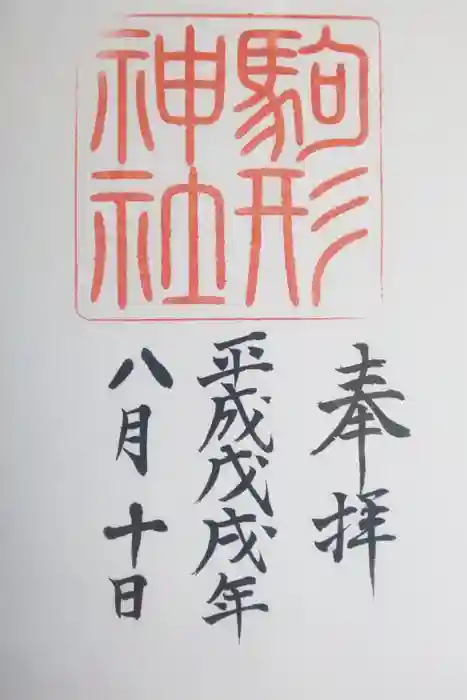 駒形
神社
奉拝
平成戊戌年
八月十日